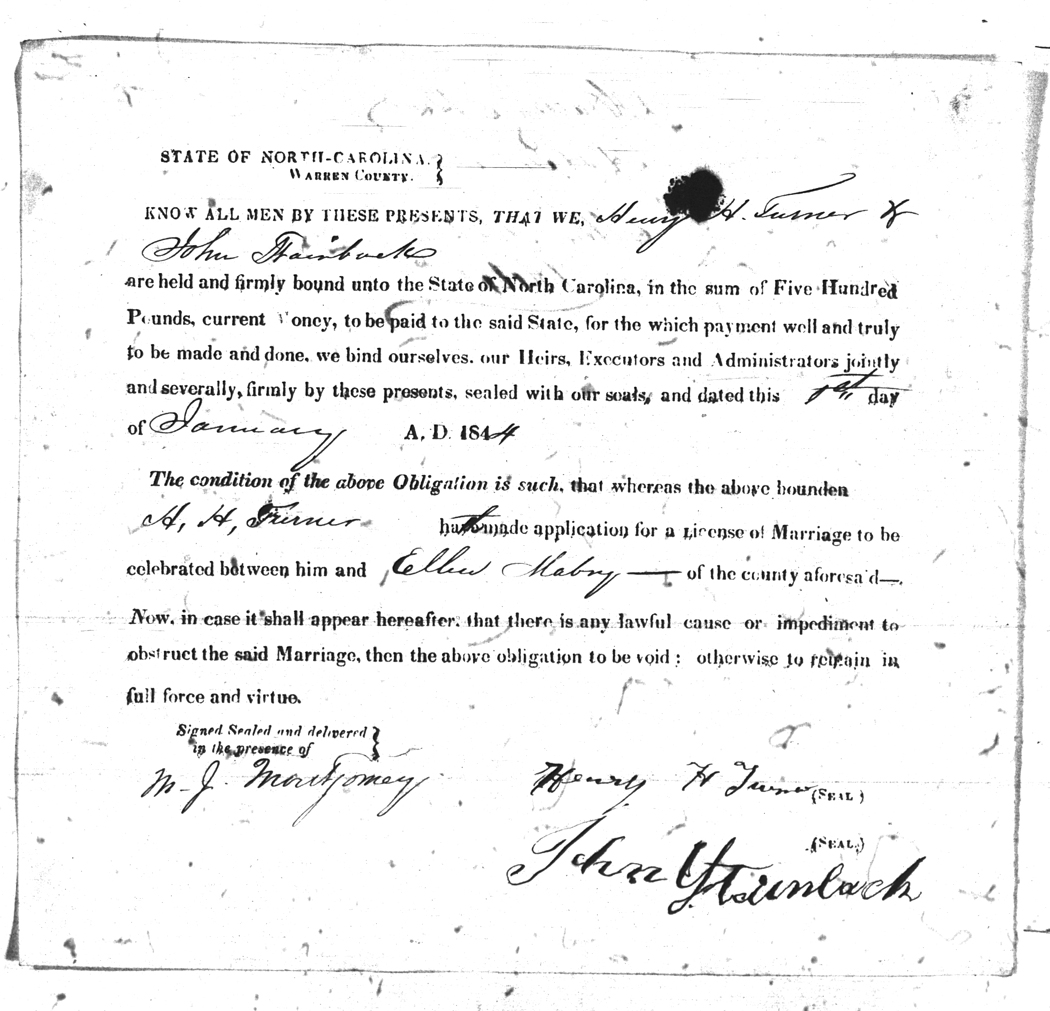 STATE OF NORTH-CAROLINA,
WARREN COUNTY.
KNOW ALL MEN BY THESE PRESENTS, THAT WE, Henry H. Turner &
John Stainback
are held and firmly bound unto the State of North Carolina, in the sum of Five Hundred
Pounds, current Money, to be paid to the said State, for the which payment well and truly
to be made and done, we bind ourselves, our Heirs, Executors and Administrators jointly
and severally, firmly by these presents, sealed with our seals, and dated this 1st day
of January A. D. 1844
The condition of the above Obligation is such, that whereas the above bounden
H, H, Turner hath made application for a License of Marriage to be
celebrated between him and Ellen Mabry — of the county aforesa'd—.
Now, in case it shall appear hereafter, that there is any lawful cause or impediment to
obstruct the said Marriage, then the above obligation to be void; otherwise to remain in
full force and virtue.
Signed Sealed and delivered
in the presence of
M. J. Montgomery
Henry H Turner (SEAL)
(SEAL.)
John Stainback